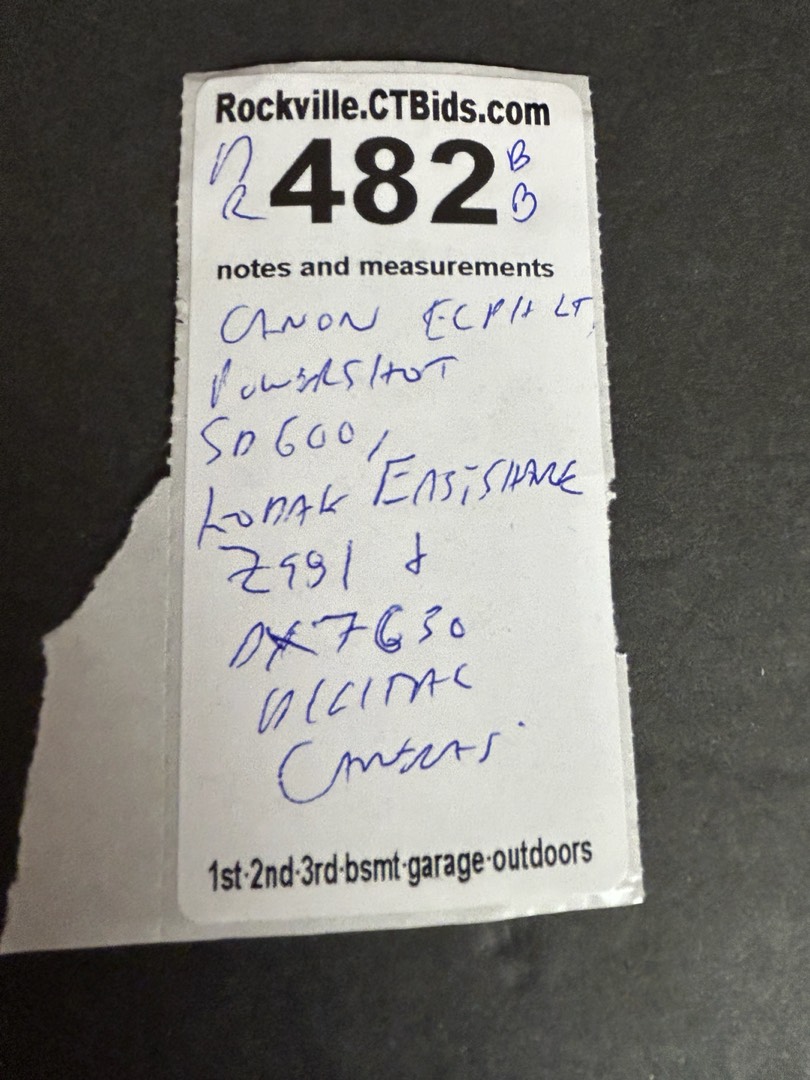 Rockville.CTBids.com
DR 482 BB
notes and measurements
CANON ECPH LT,
POWERSHOT
SD600,
KODAK EASiSHARE
Z981 &
DX7630
DIGITAL
CAMERAS
1st·2nd·3rd·bsmt·garage·outdoors